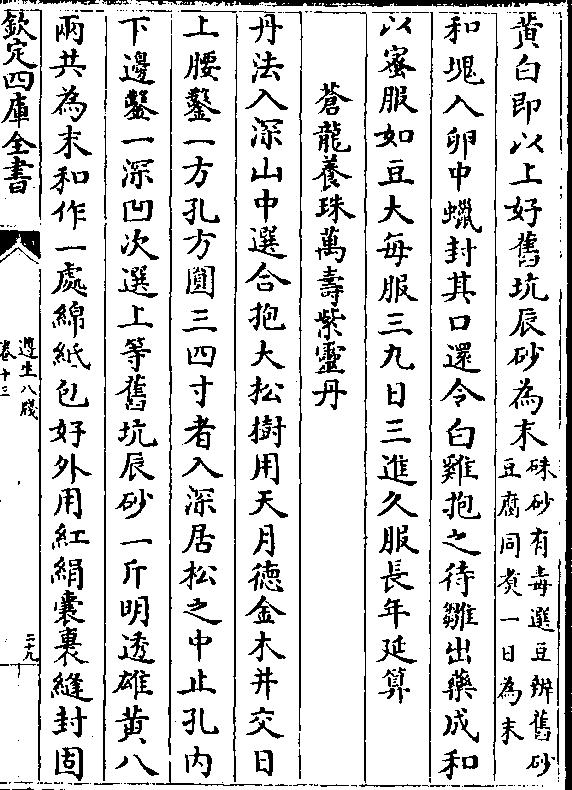 黄白即以上好舊坑辰砂為末硃砂有毒選豆辨舊砂
豆腐同煮一日為末
和塊入卵中蠟封其口還令白雞抱之待雛出藥成和
以蜜服如豆大每服三九日三進久服長年延算
蒼龍養珠萬壽紫靈丹
丹法入深山中選合抱大松樹用天月德金木并交日
上腰鑿一方孔方圓三四寸者入深居松之中止孔内
下邊鑿一深凹次選上等舊坑辰砂一斤明透雄黄八
兩共為末和作一處綿紙包好外用紅絹囊裹縫封固
欽定四庫全書
遵生八牋
卷十三
二十九